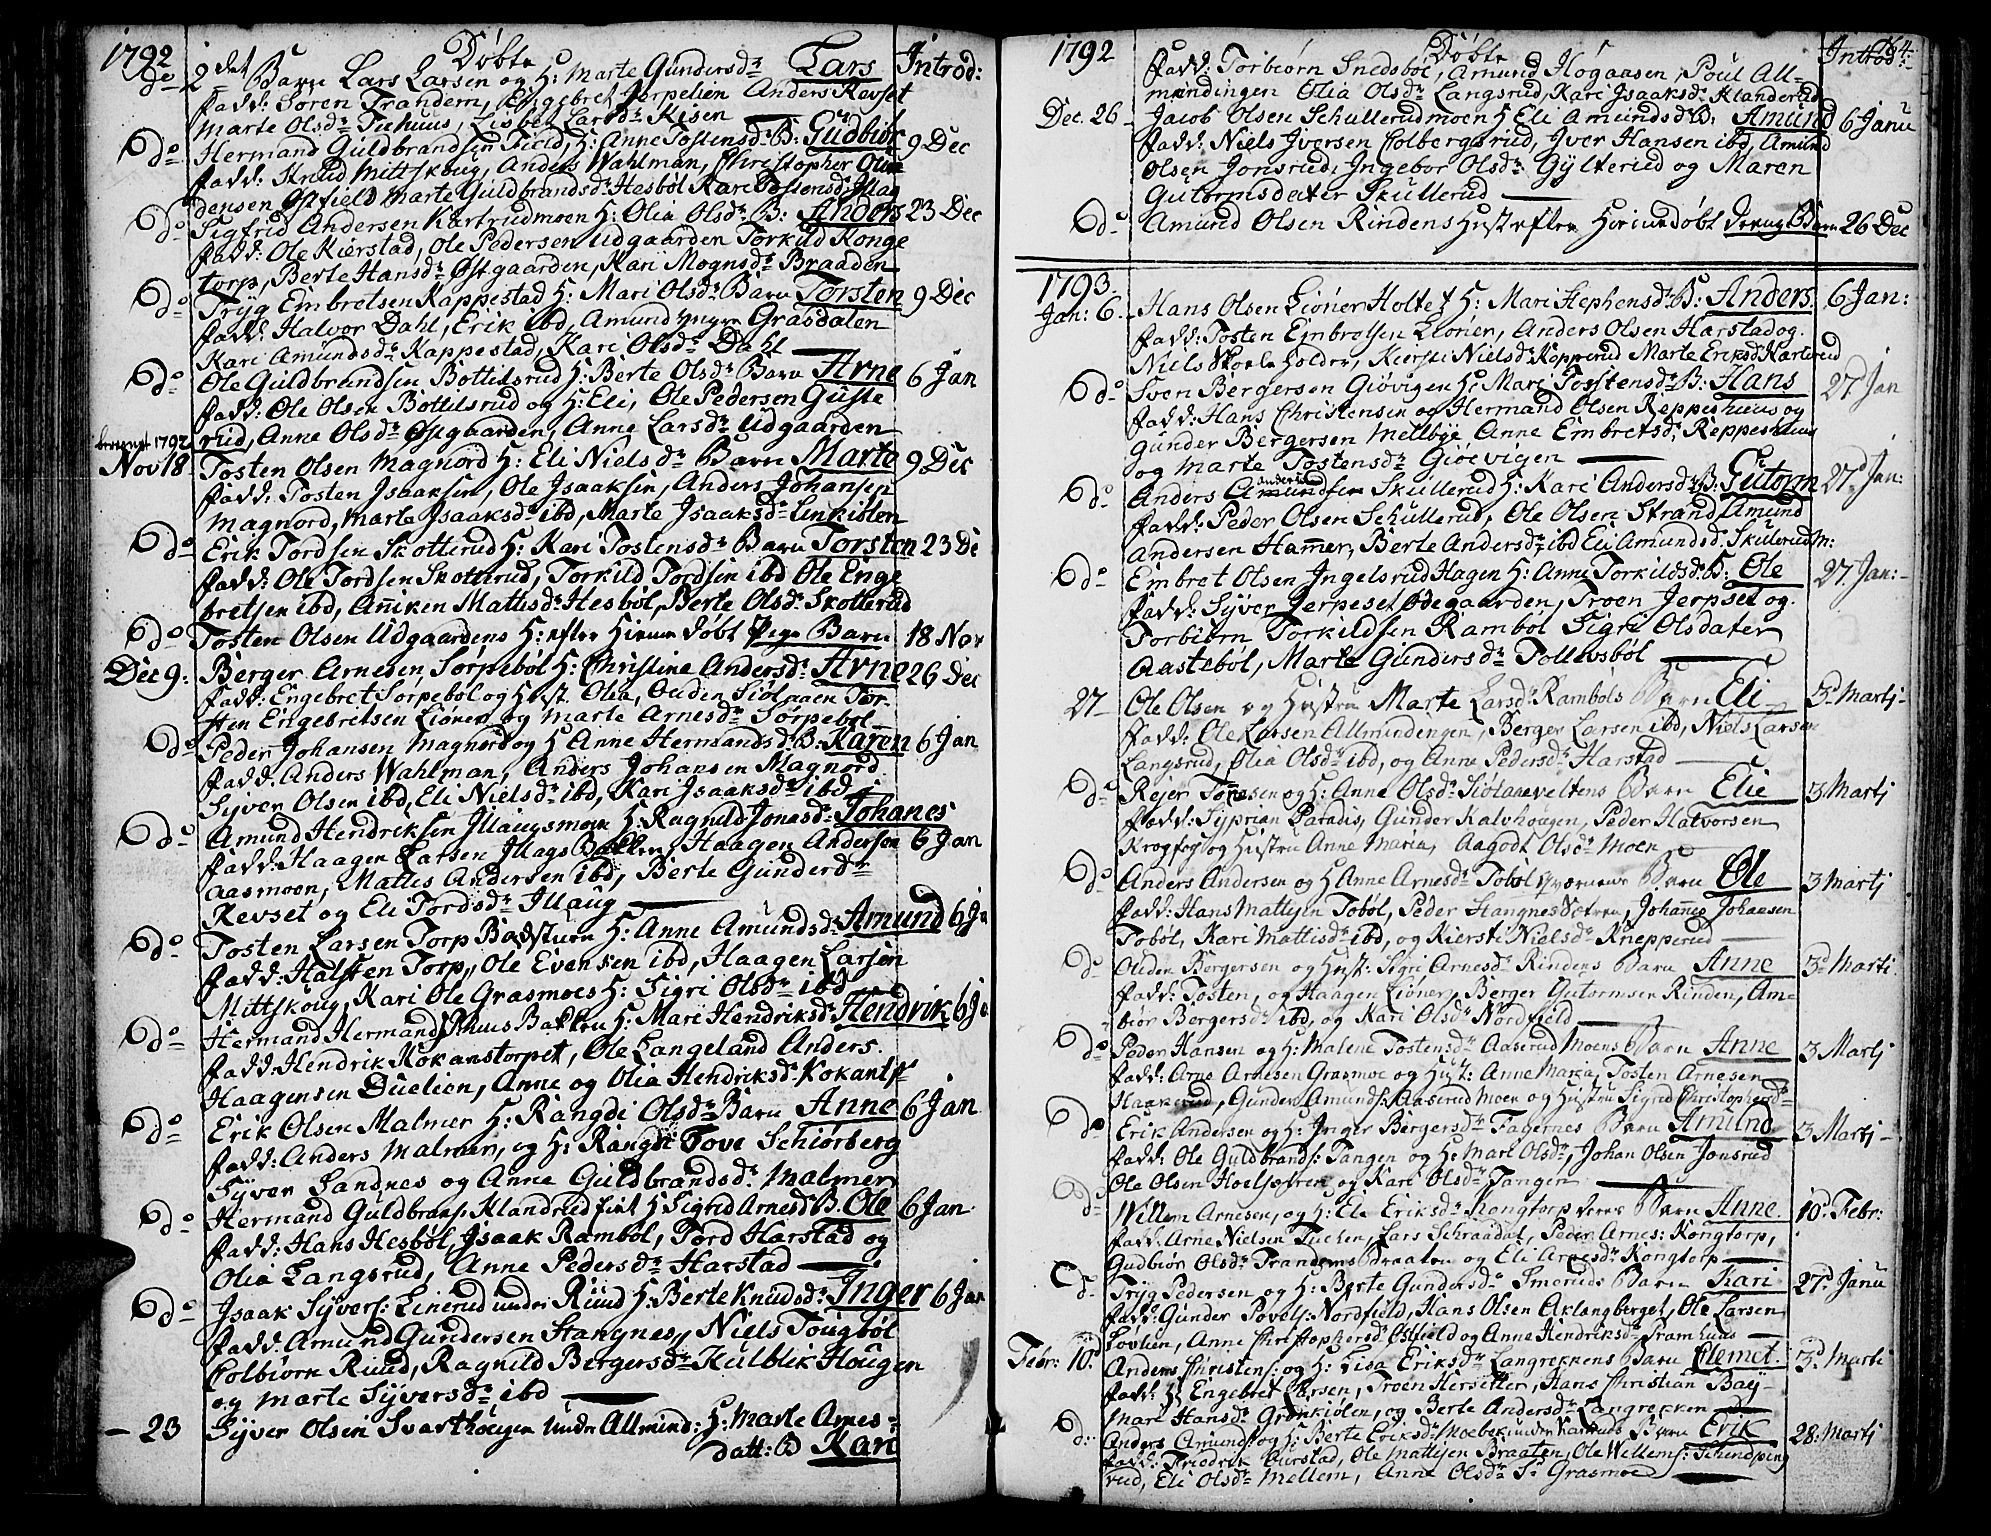 1792 Døbte Introd:
do 2det Barn Lars Larsen og H: Marte Gundersdr Lars
fadd: Soren Trandem, Engebret Jerpelien Anders Revset
Marte Olsdr Tiehuus, Lisbet Larsdr Risen
do Hermand Guldbrandsen Field, H: Anne Tostensdr B: Gudbiör 9 Dec
fadd: Knud Mittskoug, Anders Wahlman, Christopher Olsen
Østfield Marte Guldbrandsdr Hesböl Kari Tostensdr
do Sigfrid Andersen Kartrudmoen H: Olia Olsdr B: Anders 23 Dec
fadd: Ole Kierstad, Ole Pedersen Udgaarden Torkild Konge
torp, Berte Hansdr Østgaarden, Kari Mognsdr Braaden
do Tryg Embretsen Kappestad H: Mari Olsdr Barn Torsten 9 Dec
fadd: Halvor Dahl, Erik ibd, Amund yngre Grasdalen
Kari Amundsdr Kappestad, Kari Olsdr Dahl
do Ole Guldbrandsen Bottilsrud H: Berte Olsdr Barn Arne 6 Jan
fadd: Ole Olsen Bottilsrud og H: Eli, Ole Pedersen Guste
rud, Anne Olsdr Østgaarden, Anne Larsdr Udgaarden
1792
Nov 18 Tosten Olsen Magnord H: Eli Nielsdr Barn Marte 9 Dec
fadd: Tosten Isaaksen, Ole Isaaksen, Anders Johansen
Magnord, Marte Isaaksdr ibd, Marte Isaaksdr Linkiölen
do Erik Tordsen Skotterud H: Kari Tostensdr Barn Torsten 23 De
fadd: Ole Tordsen Skotterud, Torkild Tordsen ibd Ole Enge
bretsen ibd, Anniken Mattisdr Hesböl, Berte Olsdr Skotterud
do Tosten Olsen Udgaardens H: efter hiemme döbt Pige Barn 18 Nov
Dec 9: Berger Arnesen Sörpeböl H: Christine Andersdr Arne 26 Dec
fadd: Engebret Sorpeböl og Hust. Olia, Ouden Siölaaen Tor-
sten Engebretsen Liöner og Marte Arnesdr Sörpeböl
do Peder Johansen Magnord og H Anne Hermandsdr B: Karen 6 Jan
fadd: Anders Wahlman, Anders Johansen Magnord
Syver Olsen ibd, Eli Nielsdr ibd, Kari Isaaksdr ibd
do Amund Hendriksen Illaugsmoen H: Ragnild Jonasdr Johanes
fadd: Haagen Larsen Illags Bakken, Haagen Anderson 6 Jan
aasmoen, Mattis Andersen ibd, Berte Gunderdr
Revset og Eli Tordsdr Illaug
do Tosten Larsen Torp Badsturn H: Anne Amundsdr Amund 6 Ja
fadd: Halsten Torp, Ole Evensen ibd, Haagen Larsen
Mittskoug, Kari Ole Grasmoes H: Sigri Olsdr ibd
do Hermand Hermandshuus Bakken H: Mari Hendriksdr Hendrik 6 Ja
fadd: Hendrik Kokanstorpet, Ole Langeland Anders
Haagensen Duelien, Anne og Olia Hendriksdr Kokanst
do Erik Olsen Malmer H: Rangdi Olsdr Barn Anne 6 Jan
fadd: Anders Malmer, og H: Rangdi Tove Schiörberg
Syver Sandnes og Anne Guldbrandsdr Malmer
do Hermand Guldbrans: Klandrud H Sigrid Arnesdr B. Ole 6 Jan
fadd: Hans Hesböl, Isaak Ramböl, Tord Harstad og
Olia Langsrud, Anne Pedersdr Harstad
do Isaak Syvers: Einerud under Ruud H: Berte Knudsdr Inger 6 Jan
fadd: Amund Gundersen Stangnes, Niels Tougböl
Colbiörn Ruud, Ragnild Bergersdr Kulblik Hougen
og Marte Syversdr ibd
- 23 Syver Olsen Svarthougen under Allmind: H: Marte Arnes-
datt: B Kari
1792 Døbte Introd: 164
fadd: Torbiørn Snedsböl, Amund Høgaasen, Poul All-
mindingen Olia Olsdr Langsrud, Kari Isaaksdr Klanderud
Dec. 26 Jacob Olsen Schullerudmoen H Eli Amundsdr B: Amund 6 Janu
fadd: Niels Iversen Colbergsrud, Iver Hansen ibd, Amund
Olsen Jonsrud, Ingebor Olsdr Gylterud og Maren
Gutormsdatter Skullerud
do Amund Olsen Rindens Hust. efter hiemmedöbt Drenge Barn 26 Dec
1793.
Jan: 6. Hans Olsen Liöner Holtet H: Mari Stephensdr B: Anders. 6 Jan:
fadd: Tosten Embretsen Liöner, Anders Olsen Harstad og
Niels Holder, Kiersti Nielsdr Kopperud Marte Eriksdr Karterud
do Sven Bergersen Giövigen H: Mari Tostensdr B: Hans 27. Jan
fadd: Hans Christensen og Hermand Olsen Reppeshuus og
Gunder Bergersen Mellbye Anne Embretsdr Reppeshuus
og Marte Tostensdr Giövigen
do Anders Amundsen Skullerud H: Kari Andersdr B: Gutorm 27. Jan:
fadd: Peder Olsen Schullerud, Ole Olsen Strand Amund
Andersen Hammer, Berte Andersdr ibd Eli Amundsdr Skullerud M:
do Embret Olsen Ingelsrud Hagen H: Anne Torkildsdr B: Ole 27. Jan:
fadd: Syver Jerpeset Ødegaarden, Troen Jerpset og
Torbiörn Torkildsen Ramböl Sigri Olsdater
Aasteböl, Marte Gundersdr Tollevsböl
27 Ole Olsen og Hustru Marte Larsdr Ramböls Barn Eli 3 Martj
fadd: Ole Larsen Allmindingen, Berger Larsen ibd, Niels Larsen
Langsrud, Olia Olsdr ibd, og Anne Pedersdr Harstad
do Rejer Tönesen og H: Anne Olsdr Siölaaeveltens Barn Elie 3 Martj
fadd: Syprian Paradis, Gunder Kalvhougen, Peder Halvorsen
Krogfos og Hustru Anne Maria, Aagodt Olsdr Moen
do Anders Andersen og H Anne Arnesdr Toböl Qværnens Barn Ole 3 Martj
fadd: Hans Mattisen Toböl, Peder Stangnes Sætren, Johannes Johansen
Toböl, Kari Mattisdr ibd, og Kiersti Nielsdr Knepperud
do Ouden Bergersen og Hust: Sigri Arnesdr Rindens Barn Anne 3 Marti
fadd: Tosten, og Haagen Liöner, Berger Gutormsen Rinden, Am-
biör Bergersdr ibd, og Kari Olsdr Nordfield
do Peder Hansen og H: Malene Tostensdr Aaserud Moens Barn Anne 3 Martj
fadd: Arne Arnesen Grasmoe og Hust: Anne Maria, Tosten Arnesen
Haakerud, Gunder Amunds: Aaserud Moen og Hustru Sigrid Christophersdr
do Erik Andersen og H: Inger Bergersdr Fagernes Barn Amund 3 Martj
fadd: Ole Guldbrands: Tangen og H: Mari Olsdr, Johan Olsen Jonsrud
Ole Olsen og Kari Olsdr Tangen
do Willem Arnesen, og H: Ele Eriksdr Kongtorp deres Barn Anne. 10 Febr:
fadd: Arne Nielsen Tuchen, Lars Schraadal, Peder Arnes: Kongtorp,
Gudbiör Olsdr Trandems Braaten og Eli Arnesdr Kongtorp
do Tryg Pedersen, og H: Berte Gundersdr Smeruds Barn Kari 27 Janu
fadd: Gunder Povels: Nordfield, Hans Olsen Aklangberget, Ole Larsen
Lovlien, Anne Christophersdr Ostfield og Anne Hendriksdr Framhuus
Febr: 10 Anders Christens: og H: Lisa Eriksdr Langrekkens Barn Clemet. 3 Marti
fadd: H Engebret Larsen, Troen Hersetter, Hans Christian Bay-
Mari Hansdr Grönkiölen, og Berte Andersdr Langrekken
do Anders Amunds: og H: Berte Eriksdr Moebek under Karteruds Barn Erik 28. Martj
fadd: Friedrik Burstad, Ole Mattisen Braaten, Ole Willems:
rud, Eli Olsdr Mellem, Anne Olsdr S: Grasmoe